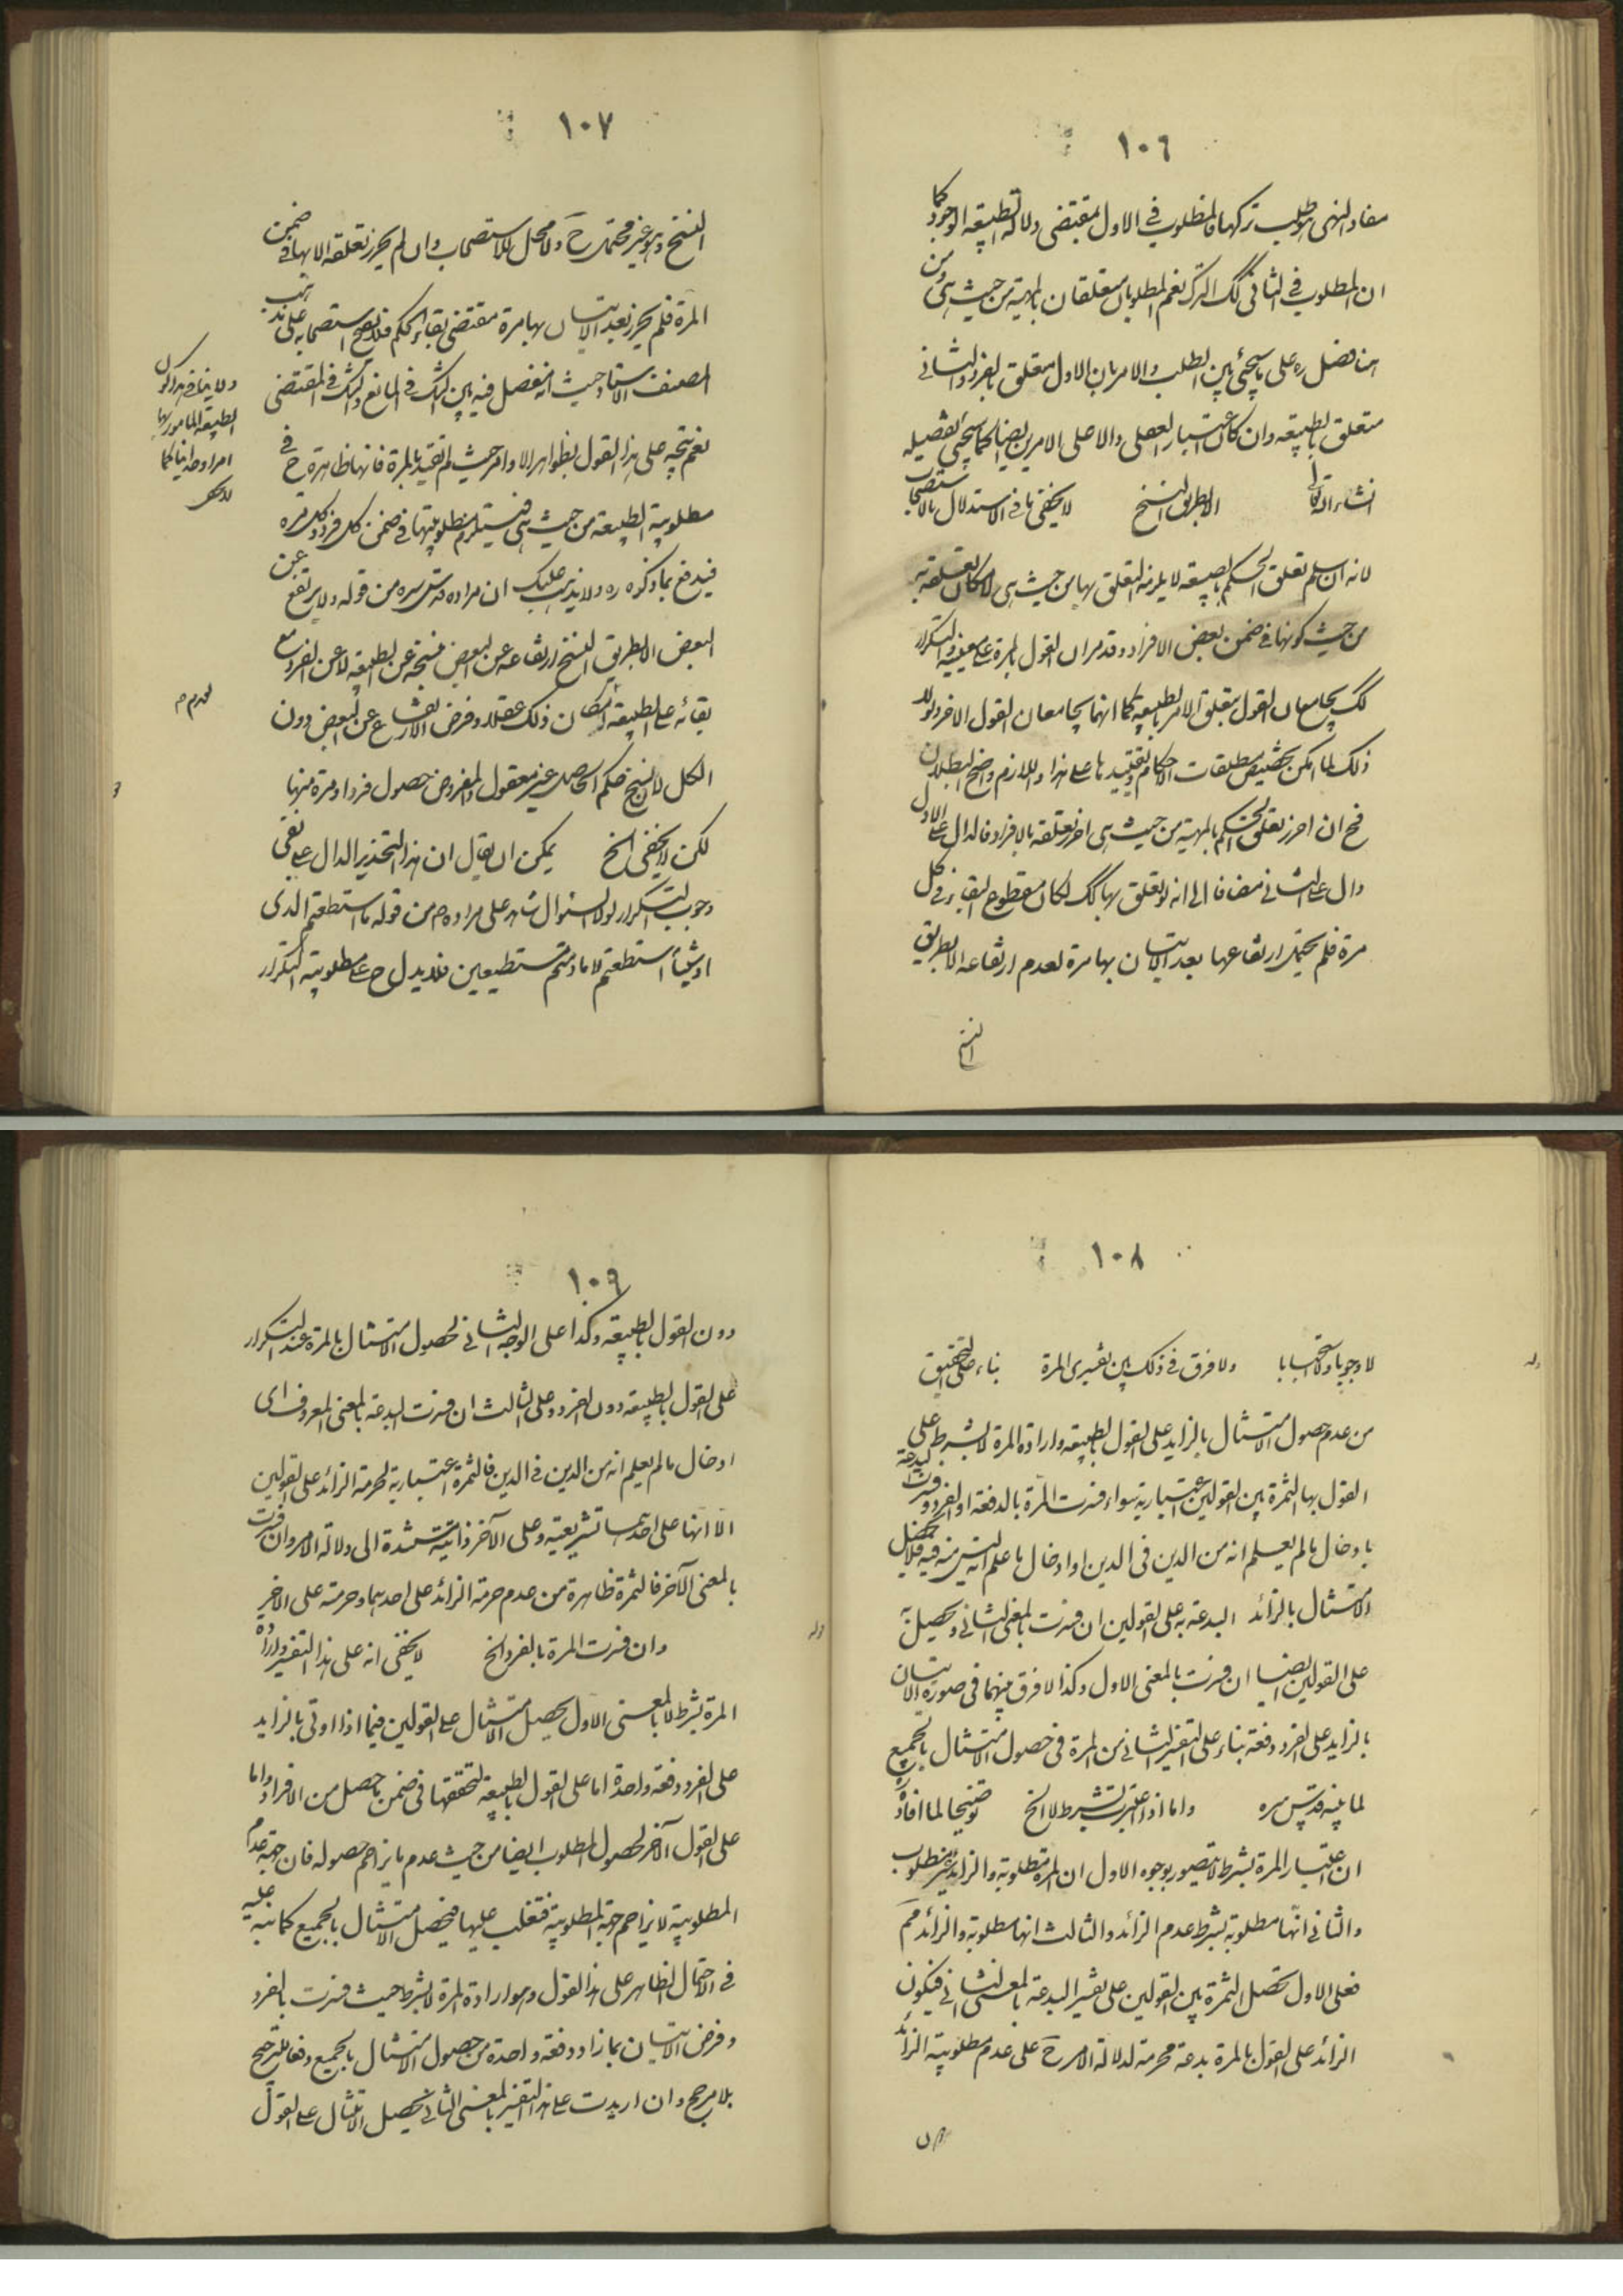 ١٠٦
مفاد النهى هو طلب تركها فالمطلوب فى الاول بمقتضى دلالته الطبيعة الوجود كما
ان المطلوب فى الثانى كك الترك نعم المطلوبان متعلقان بالمهية من حيث هى ومن
هنا فصل ره على ما سيجئ بين الطلب والامر بان الاول متعلق بالفرد والثانى
متعلق بالطبيعه وان كان باعتبار العقلى والاعلى الامرين ايضا كما سيجئ تفصيله
انشاء الله تعالى الا بطريق النسخ لا يخفى ما فى الاستدلال بالاستصحاب
لانه ان سلم تعلق الحكم بالصيغه لا يلزمه التعلق بها من حيث هى لامكان تعلقه به
من حيث كونها فى ضمن بعض الافراد وقد مر ان القول بالمرة على معنييه والتكرار
كك يجامعان القول بتعلق الامر بالطبيعه كما انهما يجامعان القول الاخر ولولا
ذلك لما امكن تخصيص مطلقات الاحكام وتقييدها على هذا واللازم واضح البطلان
فح ان احرز تعلق الحكم بالمهية من حيث هى احرز تعلقه بالافراد فالدال على الاول
دال على الثانى مضافا الى انه لو تعلق بها كك لكان مقطوع البقاء فى كل
مرة فلم يحتمل ارتفاعها بعد الاتيان بها مرة لعدم ارتفاعه الا بطريق
النسخ
١٠٧
النسخ وهو غير محتمل ح ولا محل للاستصحاب وان لم يحرز تعلقه الا بها فى ضمن
المرة فلم يحرز بعد الاتيان بها مرة مقتضى بقاء الحكم فلا يصح استصحابه على مذهب
المصنف الاستاد حيث انه يفصل فيه بين الشك فى المانع والشك فى المقتضى
نعم يتجه على هذا القول بظواهر الاوامر حيث لم تقيد بالمرة فانها ظاهرة ح فى
مطلوبية الطبيعة من حيث هى فيستلزم مطلوبيتها فى ضمن كل فرد وكل مرة
فيندفع بما ذكره ره ولا يذهب عليك ان مراده قدس سره من قوله ولا يرتفع عن
البعض الا بطريق النسخ ارتفاعه عن البعض فنسخه عن الطبيعه لا عن الفرد مع
بقائه على الطبيعه لامكان ذلك عقلا وفرض الارتفاع عن البعض دون
الكل لا نسخ حكم الحاصل غير معقول والمفروض حصول فرد او مرة منها
لكن لا يخفى الخ يمكن ان يقال ان هذا التحذير الدال على نفى
وجوب التكرار لولا السئوال شاهد على مراده ص من قوله ما استطعتم الذى
او شيئا استطعتم لا ما دمتم مستطيعين فلا يدل ح على مطلوبية التكرار
ولا ينافى هذا كون
الطبيعه المامور بها
امرا وحدانيا كما
لا يخفى
١٠٨
لا وجوبا ولا استحبابا ولا فرق فى ذلك بين تفسيرى المرة بناء على التحقيق
من عدم حصول الامتثال بالزايد على القول بالطبيعه وارادة المرة لا بشرط على
القول بها الثمرة بين القولين اعتبارية سواء فسرت المرة بالدفعة او الفرد وفسرت البدعة
بادخال ما لم يعلم انه من الدين فى الدين او ادخال ما علم انه ليس منه فيه فلا يحصل
الامتثال بالزائد البدعة به على القولين ان فسرت بالمعنى الثانى وتحصيل به
على القولين ايضا ان فسرت بالمعنى الاول وكذا لا فرق بينهما فى صورة الاتيان
بالزايد على الفرد دفعة بناء على التفسير الثانى من المرة فى حصول الامتثال بالجميع
لما بينه قدس سره واما اذا اعتبرت بشرط لا الخ توضيحا لما افاده
ان اعتبار المرة بشرط لا يتصور بوجوه الاول ان المرة مطلوبة والزايد غير مطلوب
والثانى انها مطلوبة بشرط عدم الزائد والثالث انها مطلوبة والزائد محرم
فعلى الاول تحصل الثمرة بين القولين على تفسير البدعة بالمعنى الثانى فيكون
الزائد على القول بالمرة بدعة محرمة لدلالة الامر ح على عدم مطلوبية الزائد
دون
١٠٩
دون القول بالطبيعه وكذا على الوجه الثانى لحصول الامتثال بالمرة عند التكرار
على القول بالطبيعه دون الفرد وعلى الثالث ان فسرت البدعة بالمعنى المعروف اى
ادخال ما لم يعلم انه من الدين فى الدين فالثمرة اعتبارية لحرمة الزائد على القولين
الا انها على احدهما تشريعية وعلى الآخر ذاتية مستندة الى دلالة الامر وان فسرت
بالمعنى الآخر فالثمرة ظاهرة من عدم حرمة الزائد على احدهما وحرمته على الاخر
وان فسرت المرة بالفرد الخ لا يخفى انه على هذا التفسير وارادة
المرة بشرط لا بالمعنى الاول يحصل الامتثال على القولين فيما اذا اوتى بالزايد
على الفرد دفعة واحدة اما على القول بالطبيعه لتحققها فى ضمن ما حصل من الافراد واما
على القول الآخر لحصول المطلوب ايضا من حيث عدم ما يزاحم حصوله فان جهة عدم
المطلوبية لا يزاحم جهة المطلوبية فتغلب عليها فيحصل الامتثال بالجميع كما نبه عليه
فى الاحتمال الظاهر على هذا القول وهو ارادة المرة لا بشرط حيث فسرت بالفرد
وفرض الاتيان بما زاد دفعة واحدة من حصول الامتثال بالجميع دفعا للترجيح
بلا مرجح وان اريدت على هذا التفسير بالمعنى الثانى يحصل الامتثال على القول